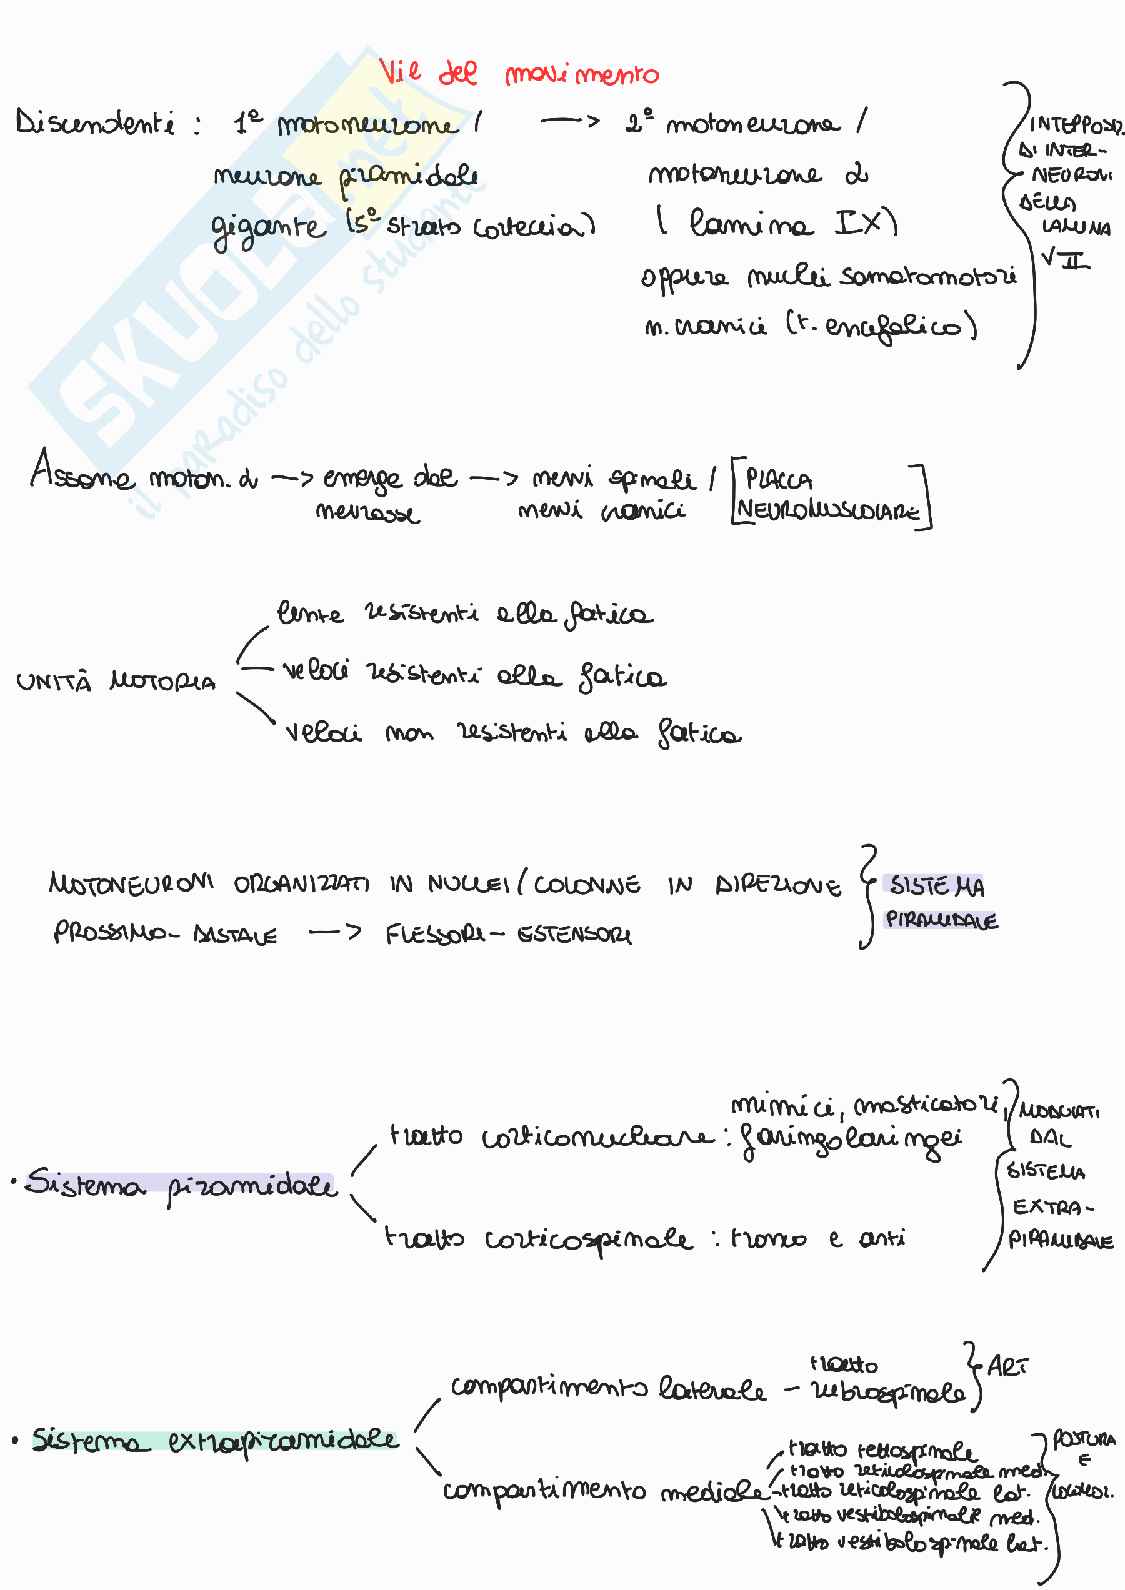 Vie del movimento
Discendenti : 1° motoneurone / → 2° motoneurone /
neurone piramidale motoneurone α
gigante (5° strato corteccia) ( lamina IX)
oppure nuclei somatomotori
n. cranici (t. encefalico)
INTERPOSIZ.
DI INTER-
NEURONI
DELLA
LAMINA
VII
Assone moton. α → emerge dal → nervi spinali / [PLACCA
nevrasse nervi cranici NEUROMUSCOLARE]
UNITÀ MOTORIA
lente resistenti alla fatica
veloci resistenti alla fatica
veloci non resistenti alla fatica
MOTONEURONI ORGANIZZATI IN NUCLEI / COLONNE IN DIREZIONE
PROSSIMO - DISTALE → FLESSORI - ESTENSORI
SISTEMA
PIRAMIDALE
• Sistema piramidale
mimici, masticatori,
tratto corticonucleare : faringolaringei
tratto corticospinale : tronco e arti
MODULATI
DAL
SISTEMA
EXTRA-
PIRAMIDALE
• Sistema extrapiramidale
tratto
compartimento laterale - rubrospinale
ARTI
compartimento mediale
tratto tettospinale
tratto reticolospinale med.
tratto reticolospinale lat.
tratto vestibolospinale med.
tratto vestibolospinale lat.
POSTURA
E
LOCOMOZ.
SKUOLA.net
il paradiso dello studente